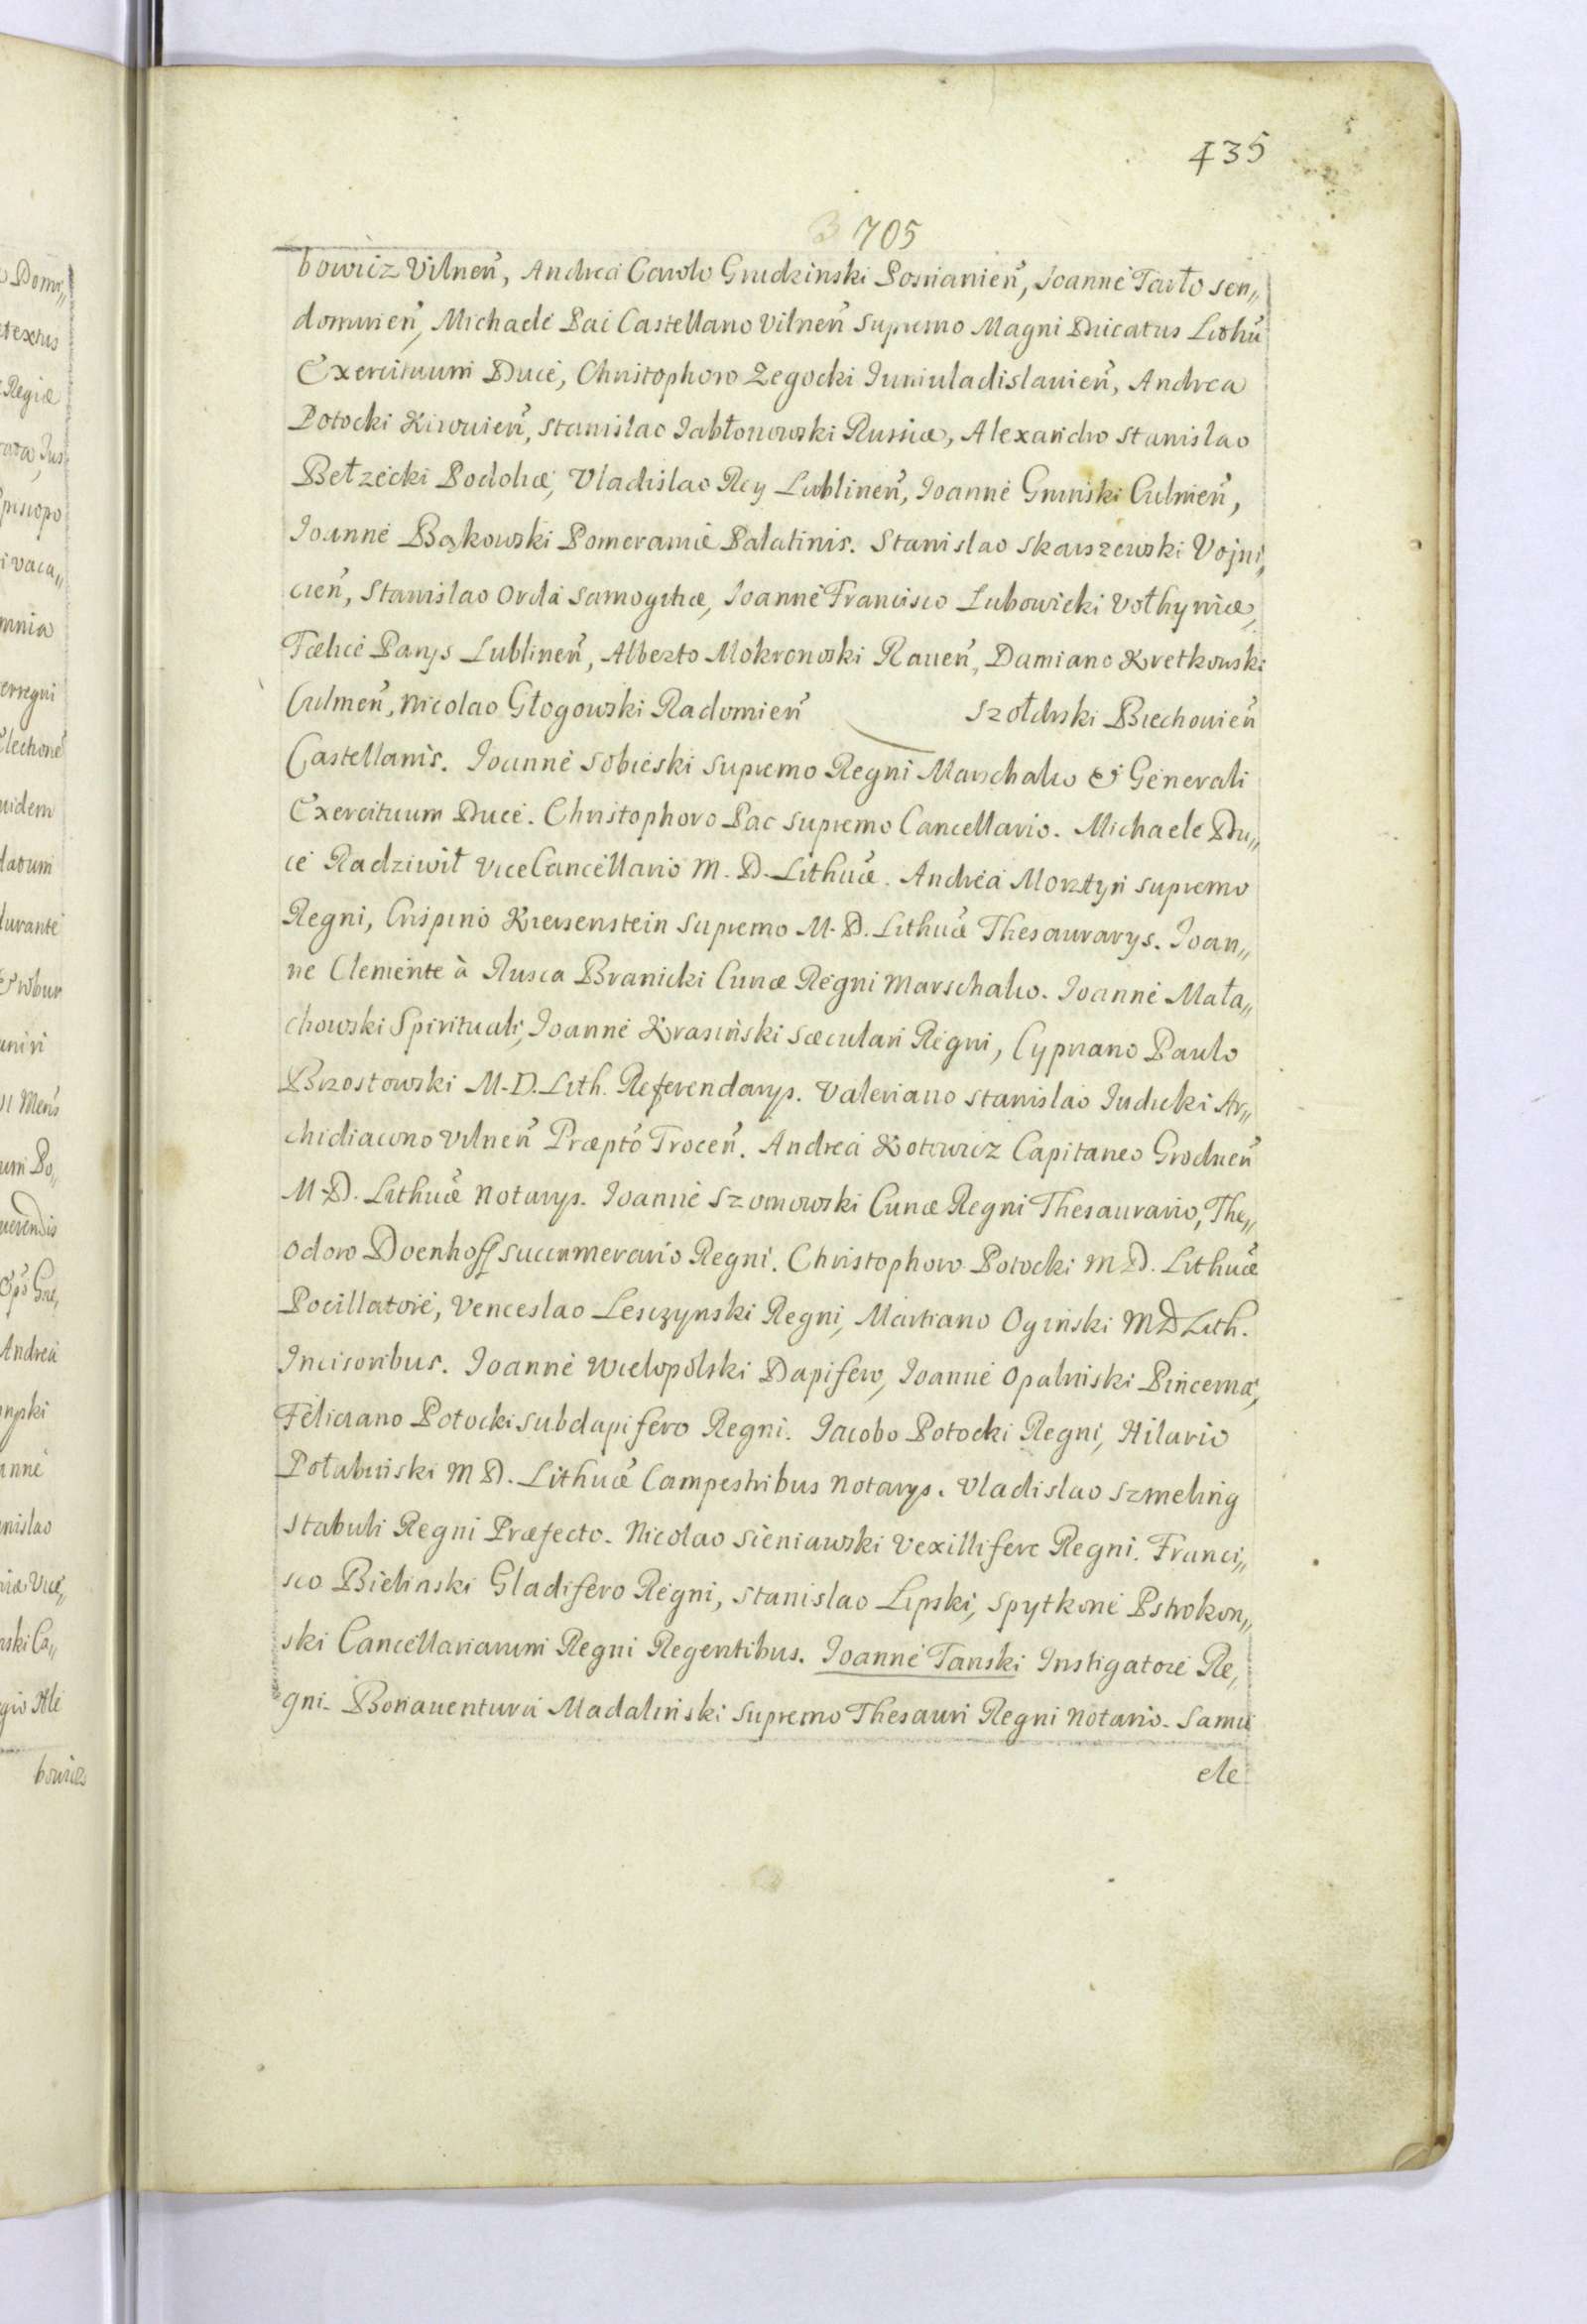 435
705
bowicz Vilnen̄, Andrea Carolo Grudzinski Posnanien̄, Joanne Tarło sen„
domirien̄, Michaele Pac Castellano Vilnen̄ Supremo Magni Ducatus Lithu
Exercituum Duce, Christophoro Zegocki Juniuladislauien̄, Andrea
Potocki Kiiouien̄, Stanislao Jabłonowski Russiæ, Alexandro Stanislao
Bełzecki Podoliæ, Vladislao Rey Lublinen̄, Joanne Gninski Culmen̄,
Joanne Bąkowski Pomeraniæ Palatinis. Stanislao Skarszewski Vojni„
cien̄, Stanislao Orda Samogitiæ, Joanne Francisco Lubowicki Vołhyniæ,
Fælice Parys Lublinen̄, Alberto Mokronowski Rauen̄, Damiano Kretkowski
Culmen̄, Nicolao Głogowski Radomien̄ Szołdrski Biechouien̄
Castellanis. Joanne Sobieski Supremo Regni Marschalco & Generali
Exercituum Duce. Christophoro Pac Supremo Cancellario. Michaele Du„
ce Radziwił ViceCancellario M. D. Lithuæ. Andrea Morztyn Supremo
Regni, Crispino Kirszenstein Supremo M. D. Lithuæ Thesaurarys. Joan„
ne Clemente à Rusca Branicki Curiæ Regni Marschalco. Joanne Mała„
chowski Spirituali, Joanne Krasinski Sæculari Regni, Cypriano Paulo
Brzostowski M. D. Lith. Referendarys. Valeriano Stanislao Judicki Ar„
chidiacono Vilnen̄ Præpto Trocen̄. Andrea Kotowicz Capitaneo Grodnen̄
M. D. Lithuæ Notarys. Joanne Szomowski Curiæ Regni Thesaurario, The„
odoro Doenhoff Succamerario Regni. Christophoro Potocki M D. Lithuæ
Pocillatore, Venceslao Lesczynski Regni, Martiano Oginski M D Lith.
Incisoribus. Joanne Wielopolski Dapifero, Joanne Opalinski Pincerna,
Feliciano Potocki Subdapifero Regni. Jacobo Potocki Regni, Hilario
Połubinski M D. Lithuæ Campestribus Notarys. Vladislao Szmeling
Stabuli Regni Præfecto. Nicolao Sieniawski Vexillifero Regni. Franci„
sco Bielinski Gladifero Regni, Stanislao Lipski, Spytkone Pstrokon„
ski Cancellariarum Regni Regentibus. Joanne Tanski Instigatore Re„
gni. Bonauentura Madalinski Supremo Thesauri Regni Notario. Samu
ele